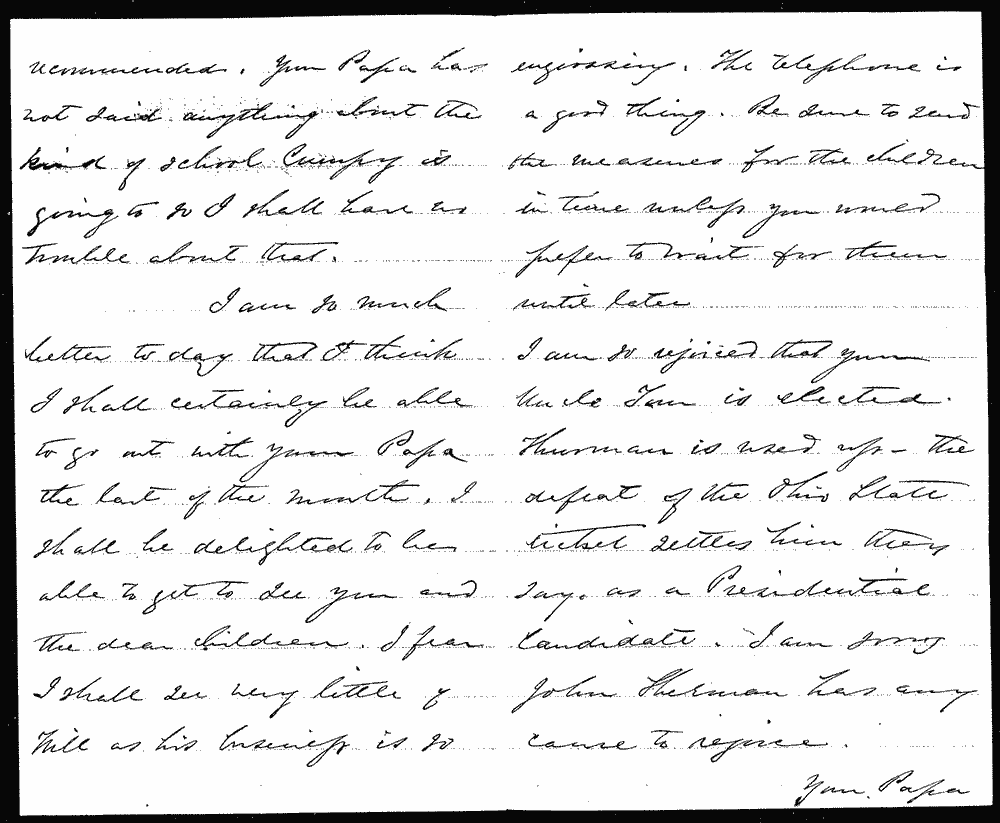 recommended. Your Papa has
not said anything about the
kind of school Cumpy is
going to so I shall have no
trouble about that.
I am so much
better to day that I think
I shall certainly be able
to go out with your Papa
the last of the month. I
shall be delighted to be
able to get to see you and
the dear children. I fear
I shall see very little of
Will as his business is so
engrossing. The telephone is
a good thing. Be sure to send
the measures for the children
in time unless you would
prefer to wait for them
until later
I am so rejoiced that your
Uncle Tom is elected.
Thurman is used up - the
defeat of the Ohio State
ticket settles him they
say. as a Presidential
Candidate. I am sorry
John Sherman has any
cause to rejoice.
Your Papa